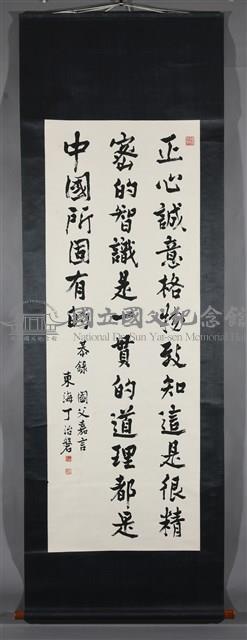 正心誠意格物致知這是很精
密的智識是一貫的道理都是
中國所固有的
恭錄 國父嘉言
東海丁治磐
國立國父紀念館
National Dr. Sun Yat-sen Memorial Hall